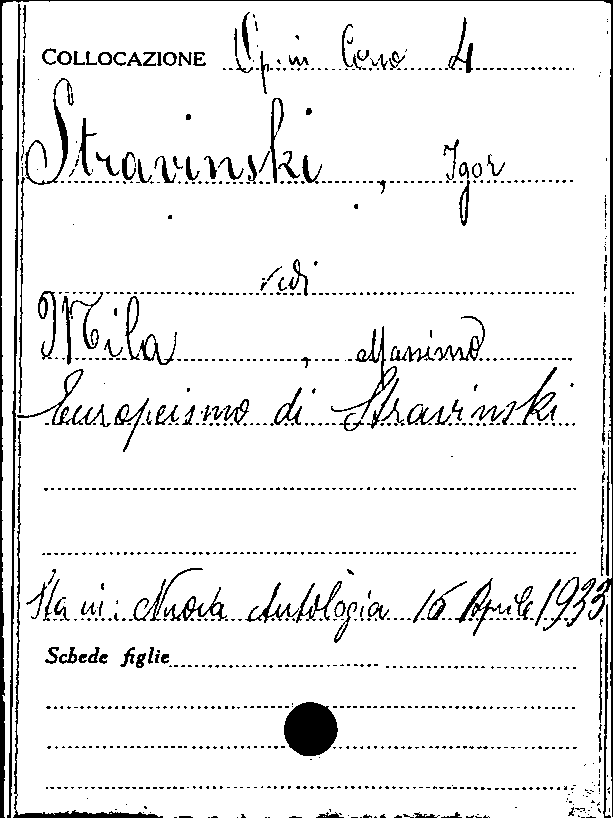 COLLOCAZIONE Op. in Corso 4
Stravinski, Igor
vedi
Mila, Massimo
Europeismo di Stravinski
Sta in: Nuova Antologia 16 Aprile 1933
Schede figlie